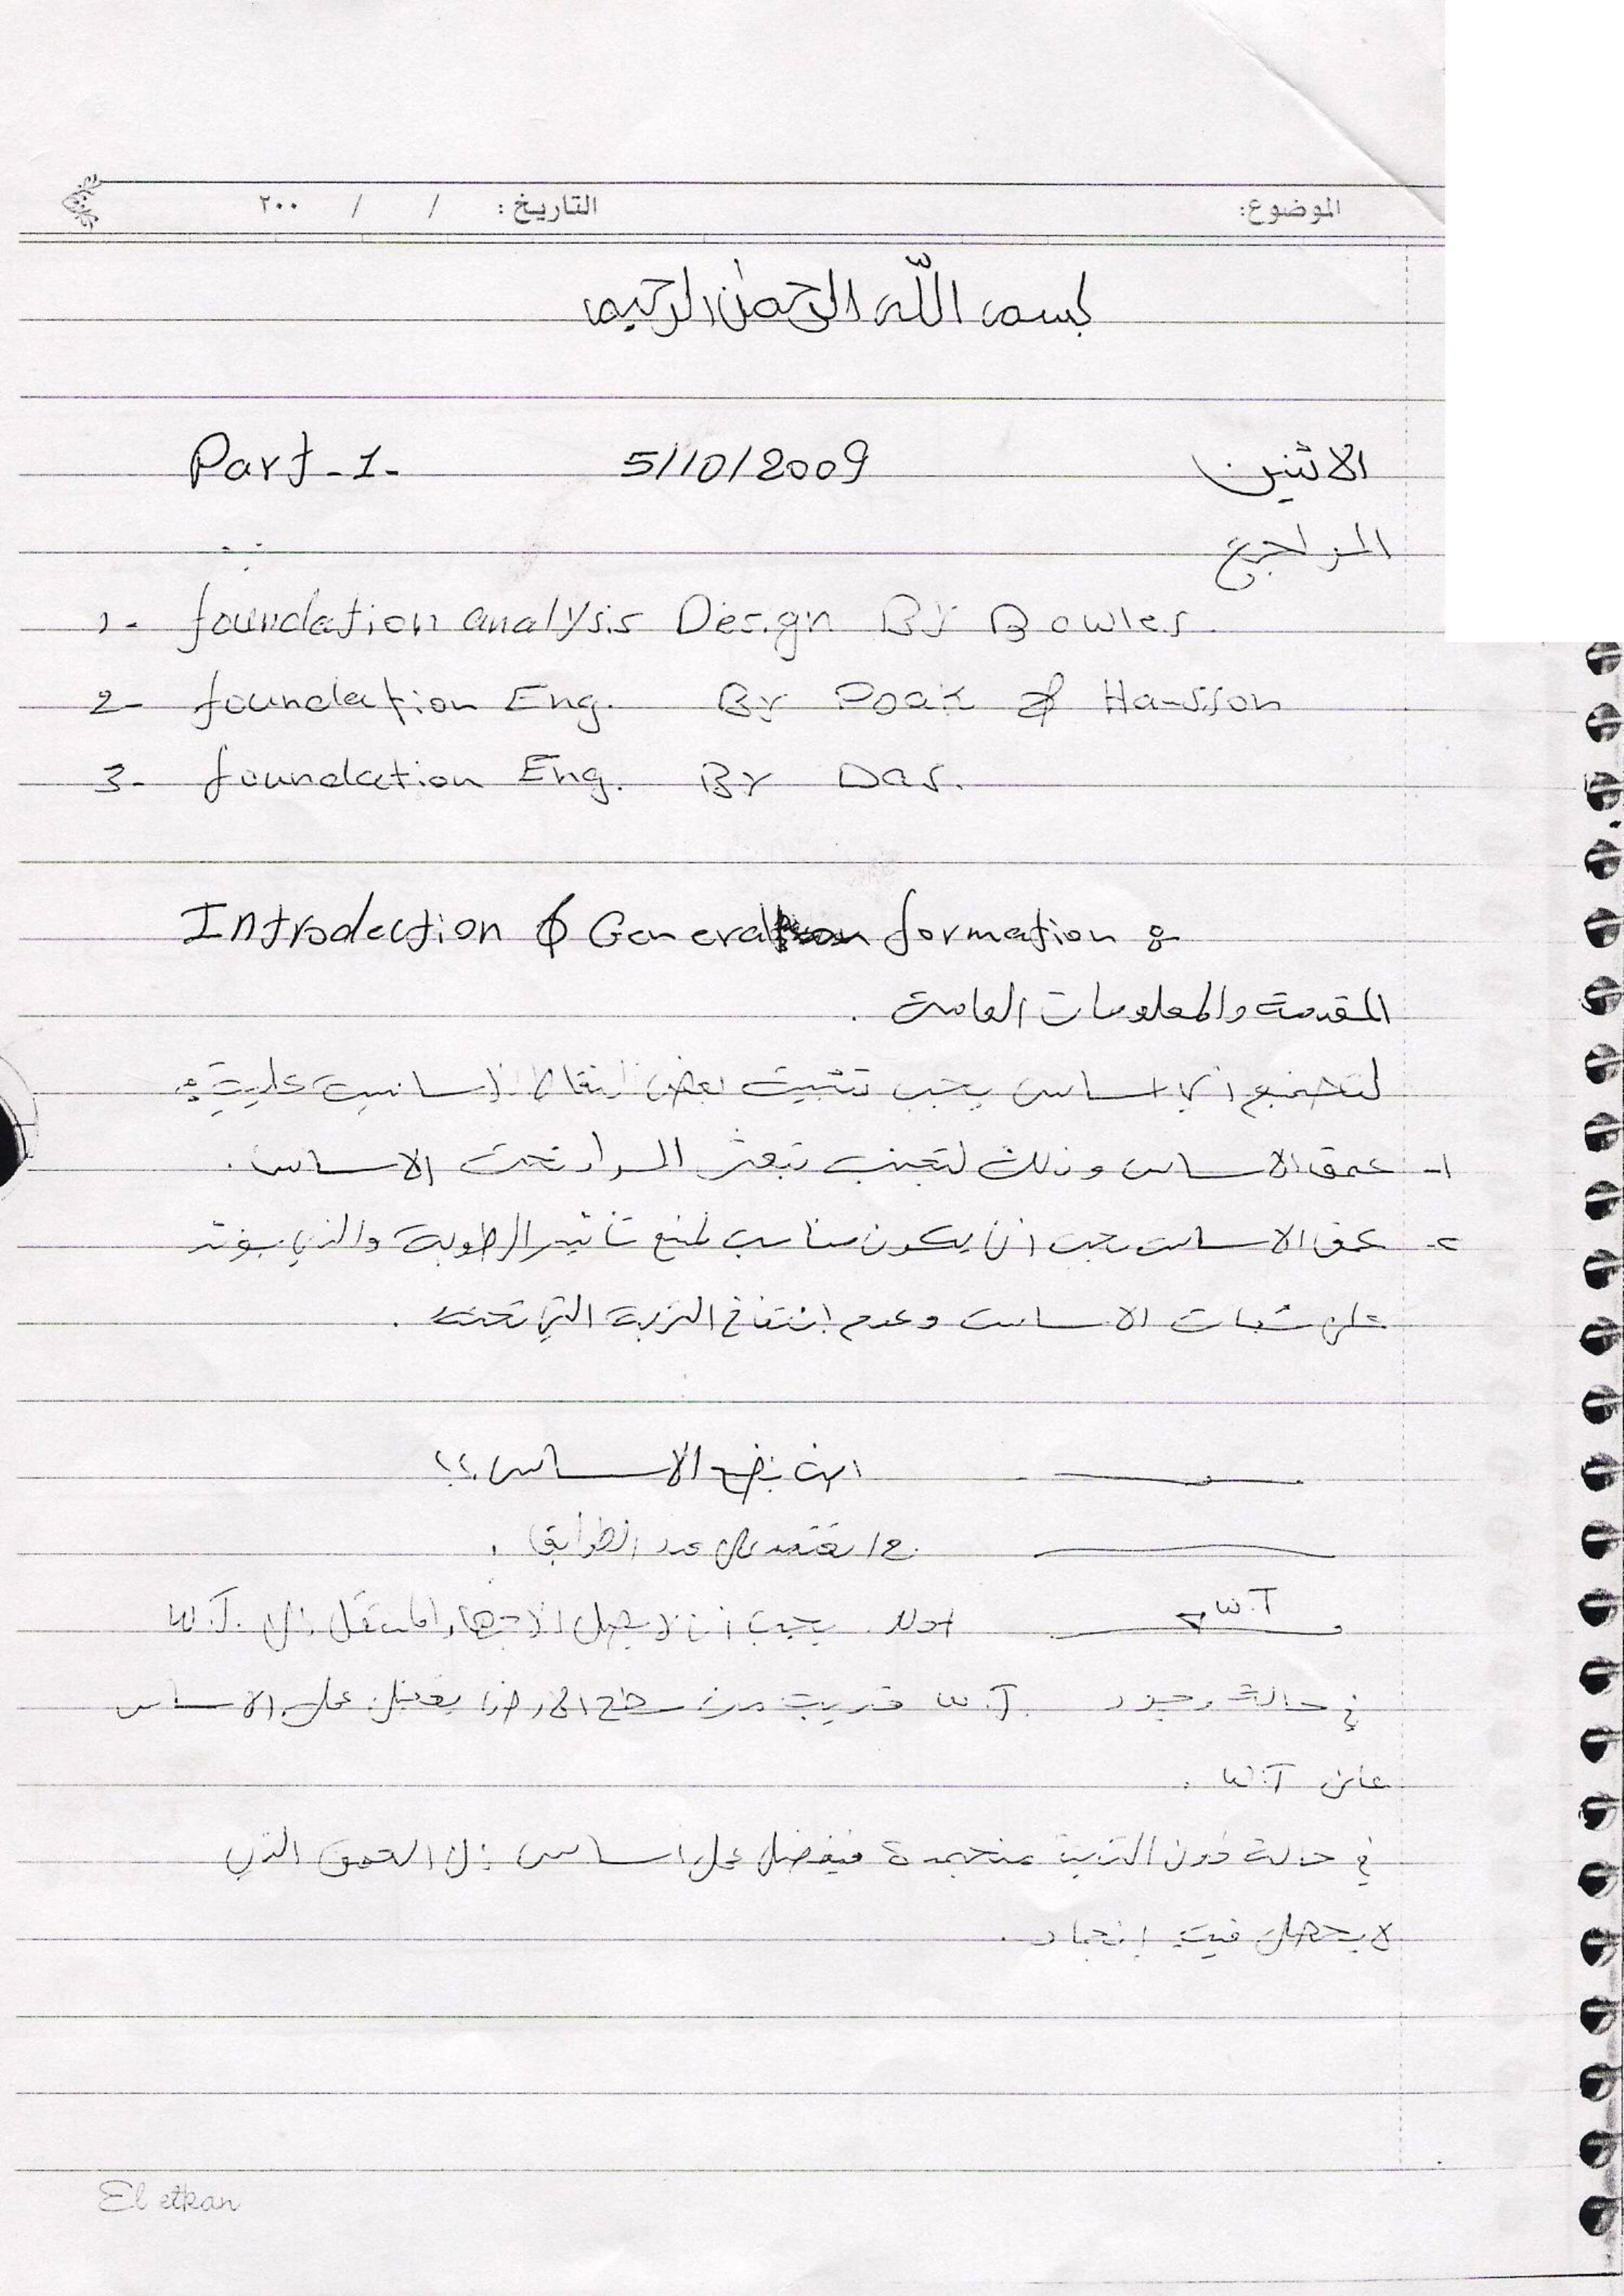 الموضوع: التاريخ : / / ٢٠٠
بسم اللّه الرحمن الرحيم
الاثنين 5/10/2009 Part-1-
المراجع
1- foundation analysis Design By Bowles
2- foundation Eng. By Poak & Hasson
3- foundation Eng. By Das.
Introdection & General formation :-
المقدمة والمعلومات العامة .
أي اساس يجب تثبيت بعض النقاط الاساسية عليه :
١- عمق الاساس وذلك لتجنب تبعثر المواد تحت الاساس .
٢- عمق الاساس يجب أن يكون مناسب لمنع تأثير الرطوبة والذي يؤثر
على ثبات الاساس وعدم انتفاخ التربة التي تحته .
اين نضع الاساس ؟؟
ج/ يعتمد على عدد الطوابق .
W.T اولا. يجب أن لا يصل الاجهاد المنتقل إلى W.T.
في حالة وجود W.T. قريب من سطح الارض يفضل الاساس
W.T .
في حالة كون التربة منجمدة فيفضل اساس إلى العمق الذي
لا يحصل فيه إنجماد .
El etkan